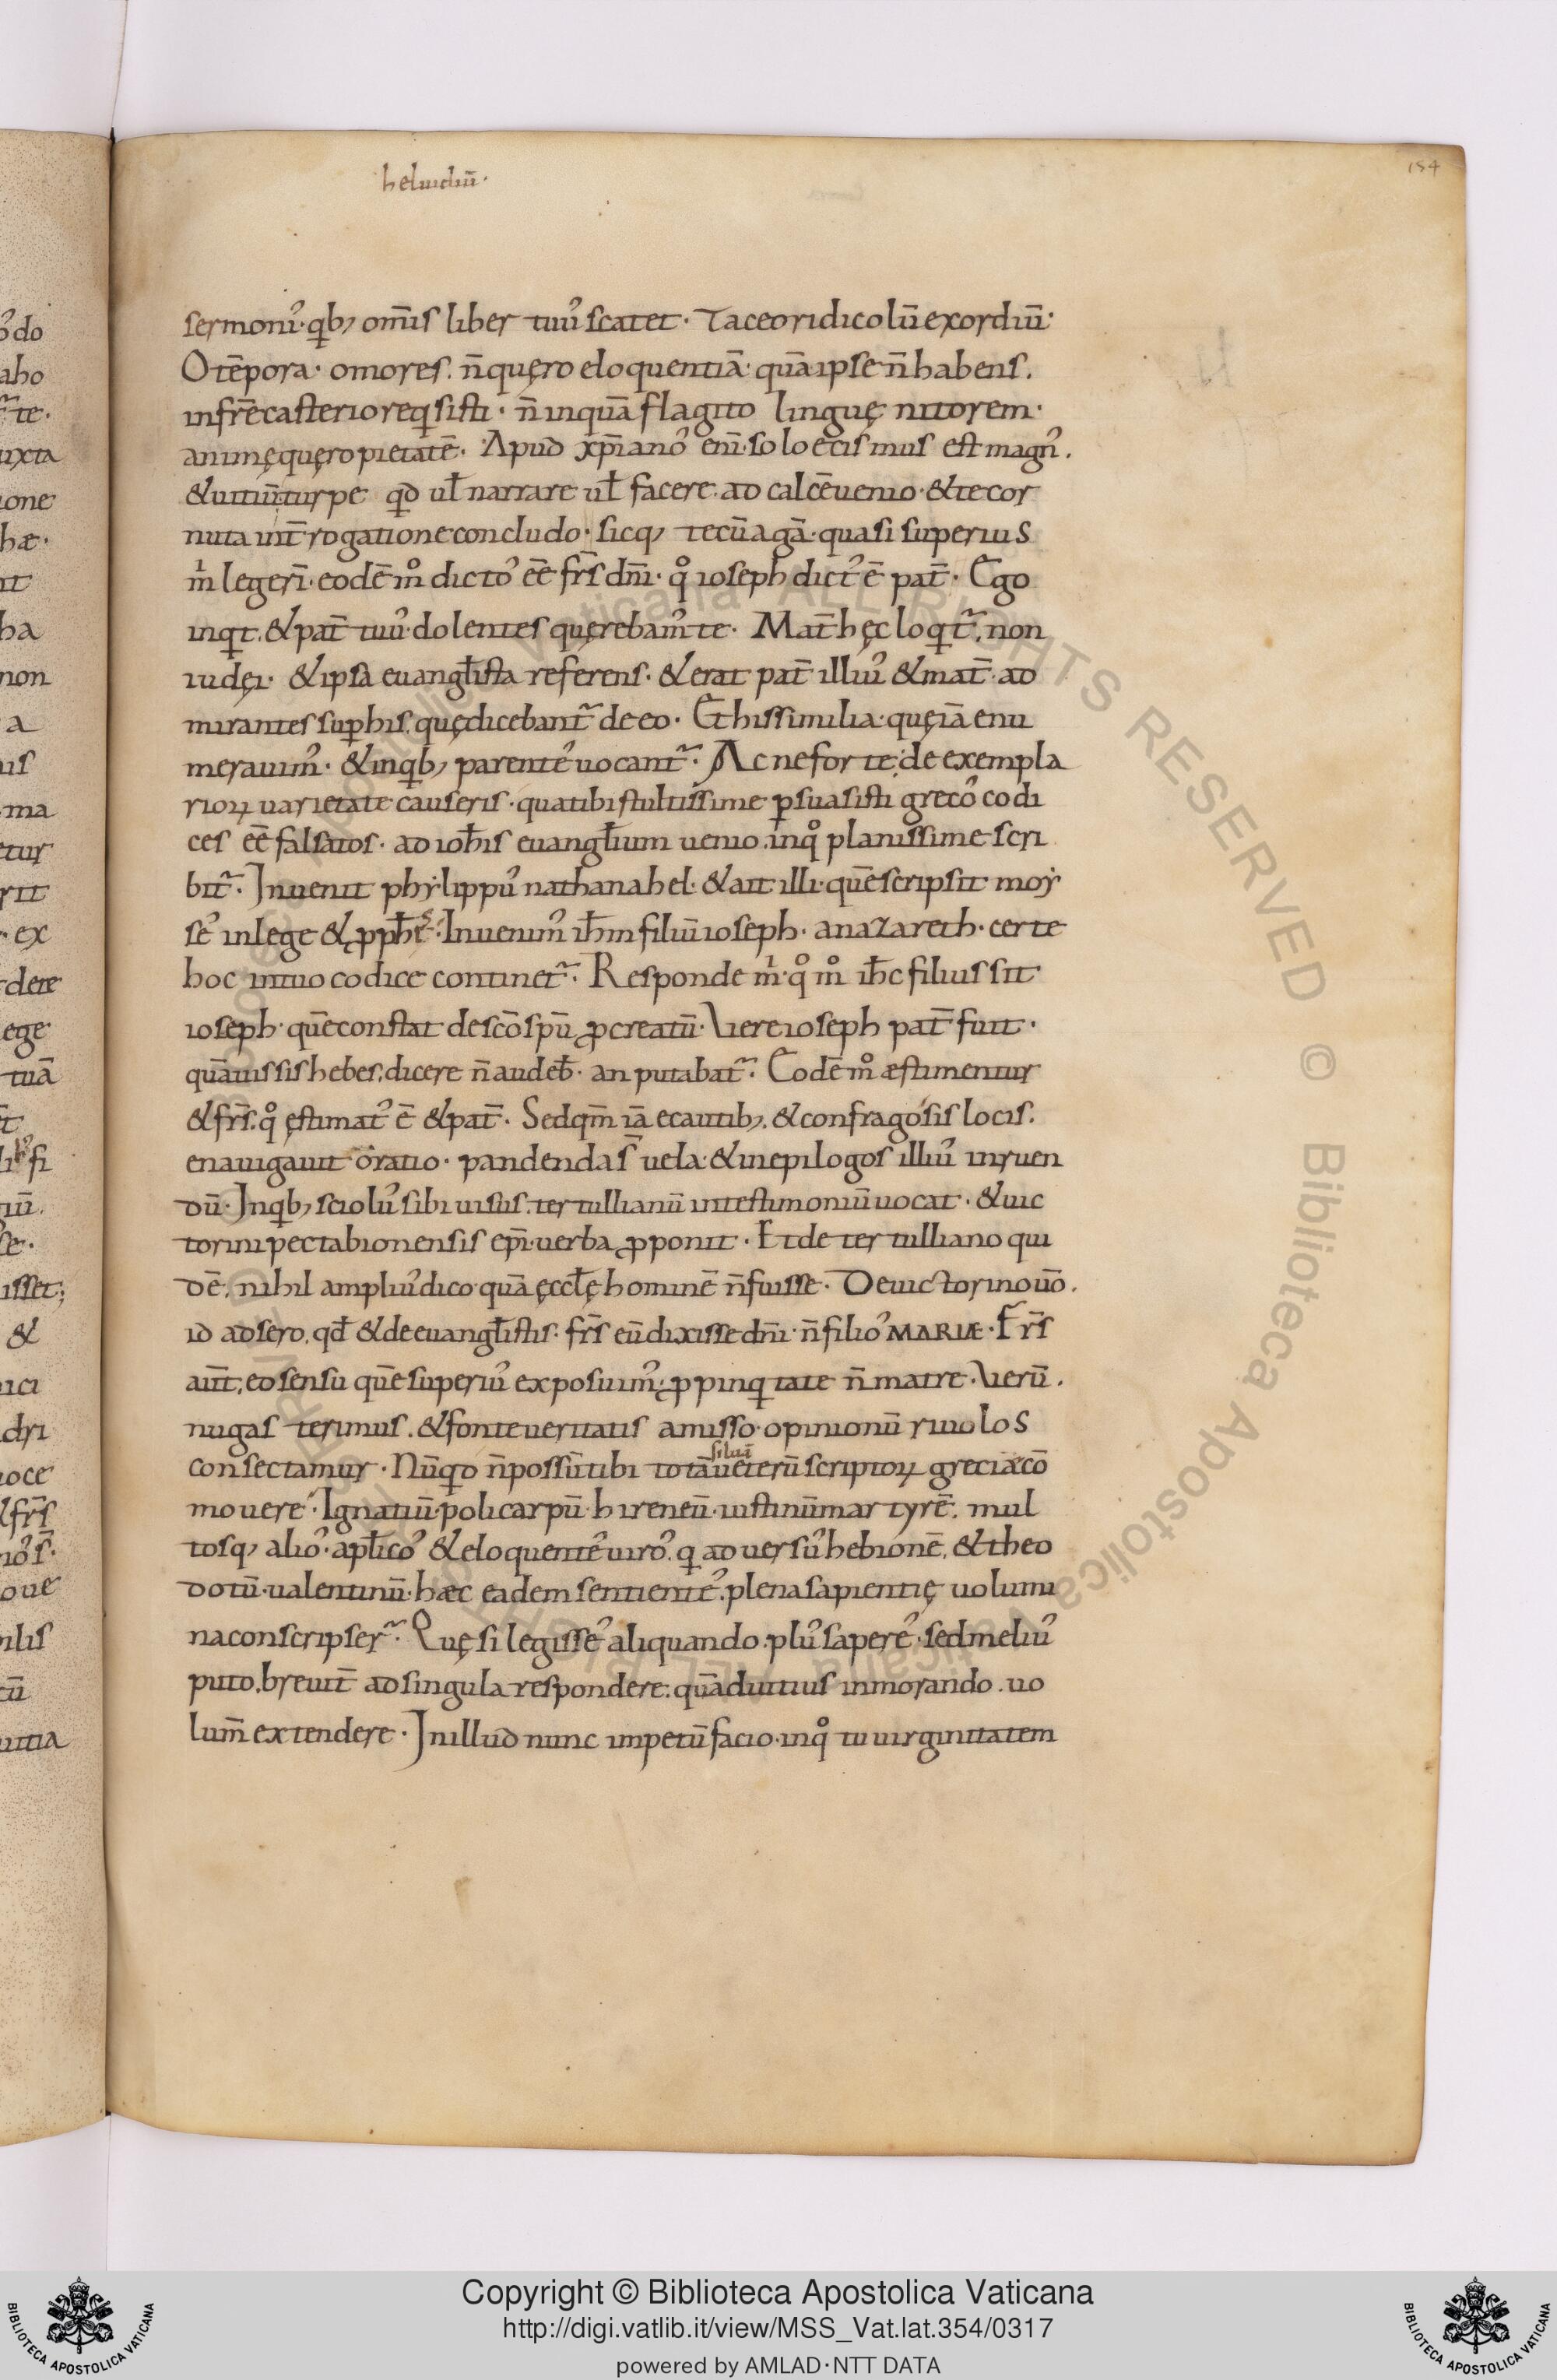 heluidiū·
154
sermonū᾽·qb; om̄is liber tuu᾽ scatet· Taceo ridicolū exordiū·
O tēpora· o mores. n̄ quęro eloquentiā· quā ipse n̄ habens.
in fr̄e casterio reqsisti· n̄ inquā flagito linguę nitorem·
animę quęro pietatē· Apud xp̄iano᾽ eni᾽·soloecismus est magn᾽.
& uitiū turpe qd ul̄ narrare ul̄ facere. ad calcē uenio· & te cor
nuta int̄rogatione concludo· sicq; tecū agā· quasi superius
m̊ legerī· eodē m̊ dicto᾽ ēe fr̄s dn̄i· q̊ ioseph dict᾽ ē pat̄· Ego
inqt. & pat̄ tuu᾽ dolentes quęrebam᾽ te· Mat̄ hęc loqt᷑, non
iudęi· & ipsa euangl̄ista referens· & erat pat̄ illiu᾽ & mat̄· ad
mirantes sup his, quę dicebant᷑ de eo· Et his similia· quę iā enu
merauim᾽· & in qb; parente᾽ uocant᷑· Ac ne forte; de exempla
rioꝝ uarietate causeris· qua tibi stultissime ꝑsuasisti greco᾽ codi
ces ēe falsatos· ad ioh̄is euangl̄ium uenio. in q̊ planissime scri
bit᷑· Inuenit phẏlippu᾽ nathanahel· & ait illi· quē scripsit moẏ
se᾽ in lege & ꝓph̄e· Inuenim᾽ ih̄m filiū ioseph· a nazareth· certe
hoc in tuo codice continet᷑· Responde m̊· q̊ m̊ ih̄c filius sit
ioseph· quē constat de sc̄o sp̄u ꝓcreatū· Vere ioseph pat̄ fuit·
quāuis sis hebes, dicere n̄ audeb̄· an putabat᷑· Eodē m̊ æstimentur
& fr̄s. q̊ ęstimat᾽ ē & pat̄· Sed qm̄ iā e cautib;. & confragosis locis.
enauigauit oratio· pandenda s̄ uela· & in epilogos illiu᾽ inruen
dū· In qb; sciolu᾽ sibi uisus. tertullianū in testimoniū uocat· & uic
torini pectabionensis ep̄i· uerba ꝓponit· Et de tertulliano qui
dē, nihil ampliu᾽ dico· quā ęccl̄ę hominē n̄ fuisse· De uictorino uō.
id adsero, qd̄ & de euangl̄istis· fr̄s eū dixisse dn̄i· n̄ filio᾽ MARIÆ· Fr̄s
aūt, eo sensu quē superiu᾽ exposuim᾽· ꝓpinqtate n̄ matre· Verū.
nugas terimus. & fonte ueritatis amisso· opinionū riuolos
consectamur· Nūqd n̄ possū tibi totā ueterū scriptoꝝ greciā cō
mouere· Ignatiū· policarpū· hireneū· iustinū martyrē. mul
tosq; alio᾽· apl̄ico᾽ & eloquente᾽ uiro᾽. q aduersu᾽ hebionē, & theo
dotū· ualentinū· hæc eadem sentiente᾽. plena sapientię uolumi
na conscripser᷑· Quę si legisse᾽ aliquando. plu᾽ sapere᾽· sed meliu᾽
puto, breuit̄ ad singula respondere. quā diutius inmorando. uo
lum̄ extendere· In illud nunc impetū facio· in q̊ tu uirginitatem
Copyright © Biblioteca Apostolica Vaticana
http://digi.vatlib.it/view/MSS_Vat.lat.354/0317
powered by AMLAD·NTT DATA